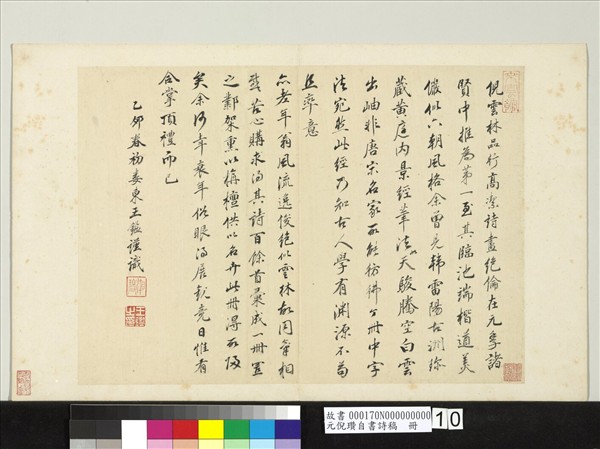 倪雲林品行高潔詩畫絕倫在元季諸
賢中推為第一至其臨池端楷遒美
儼似六朝風格余曾見韓雷陽古洲珎
藏黃庭內景經筆法天駿騰空白雲
出岫非唐宋名家所能彷彿公冊中字
法宛然此經乃知古人學有淵源不苟
且率意
老年翁風流逸俊絕似雲林故同氣相
苦心購求得其詩百餘首彙成一冊置
之鄴架重以栴檀供以名卉此冊得所歸
矣余何幸衰年俗眼得展玩竟日惟有
合掌頂禮而已
乙卯春初婁東王鑑謹識
故書 000170N000000000
元倪瓚自書詩稿 冊
10